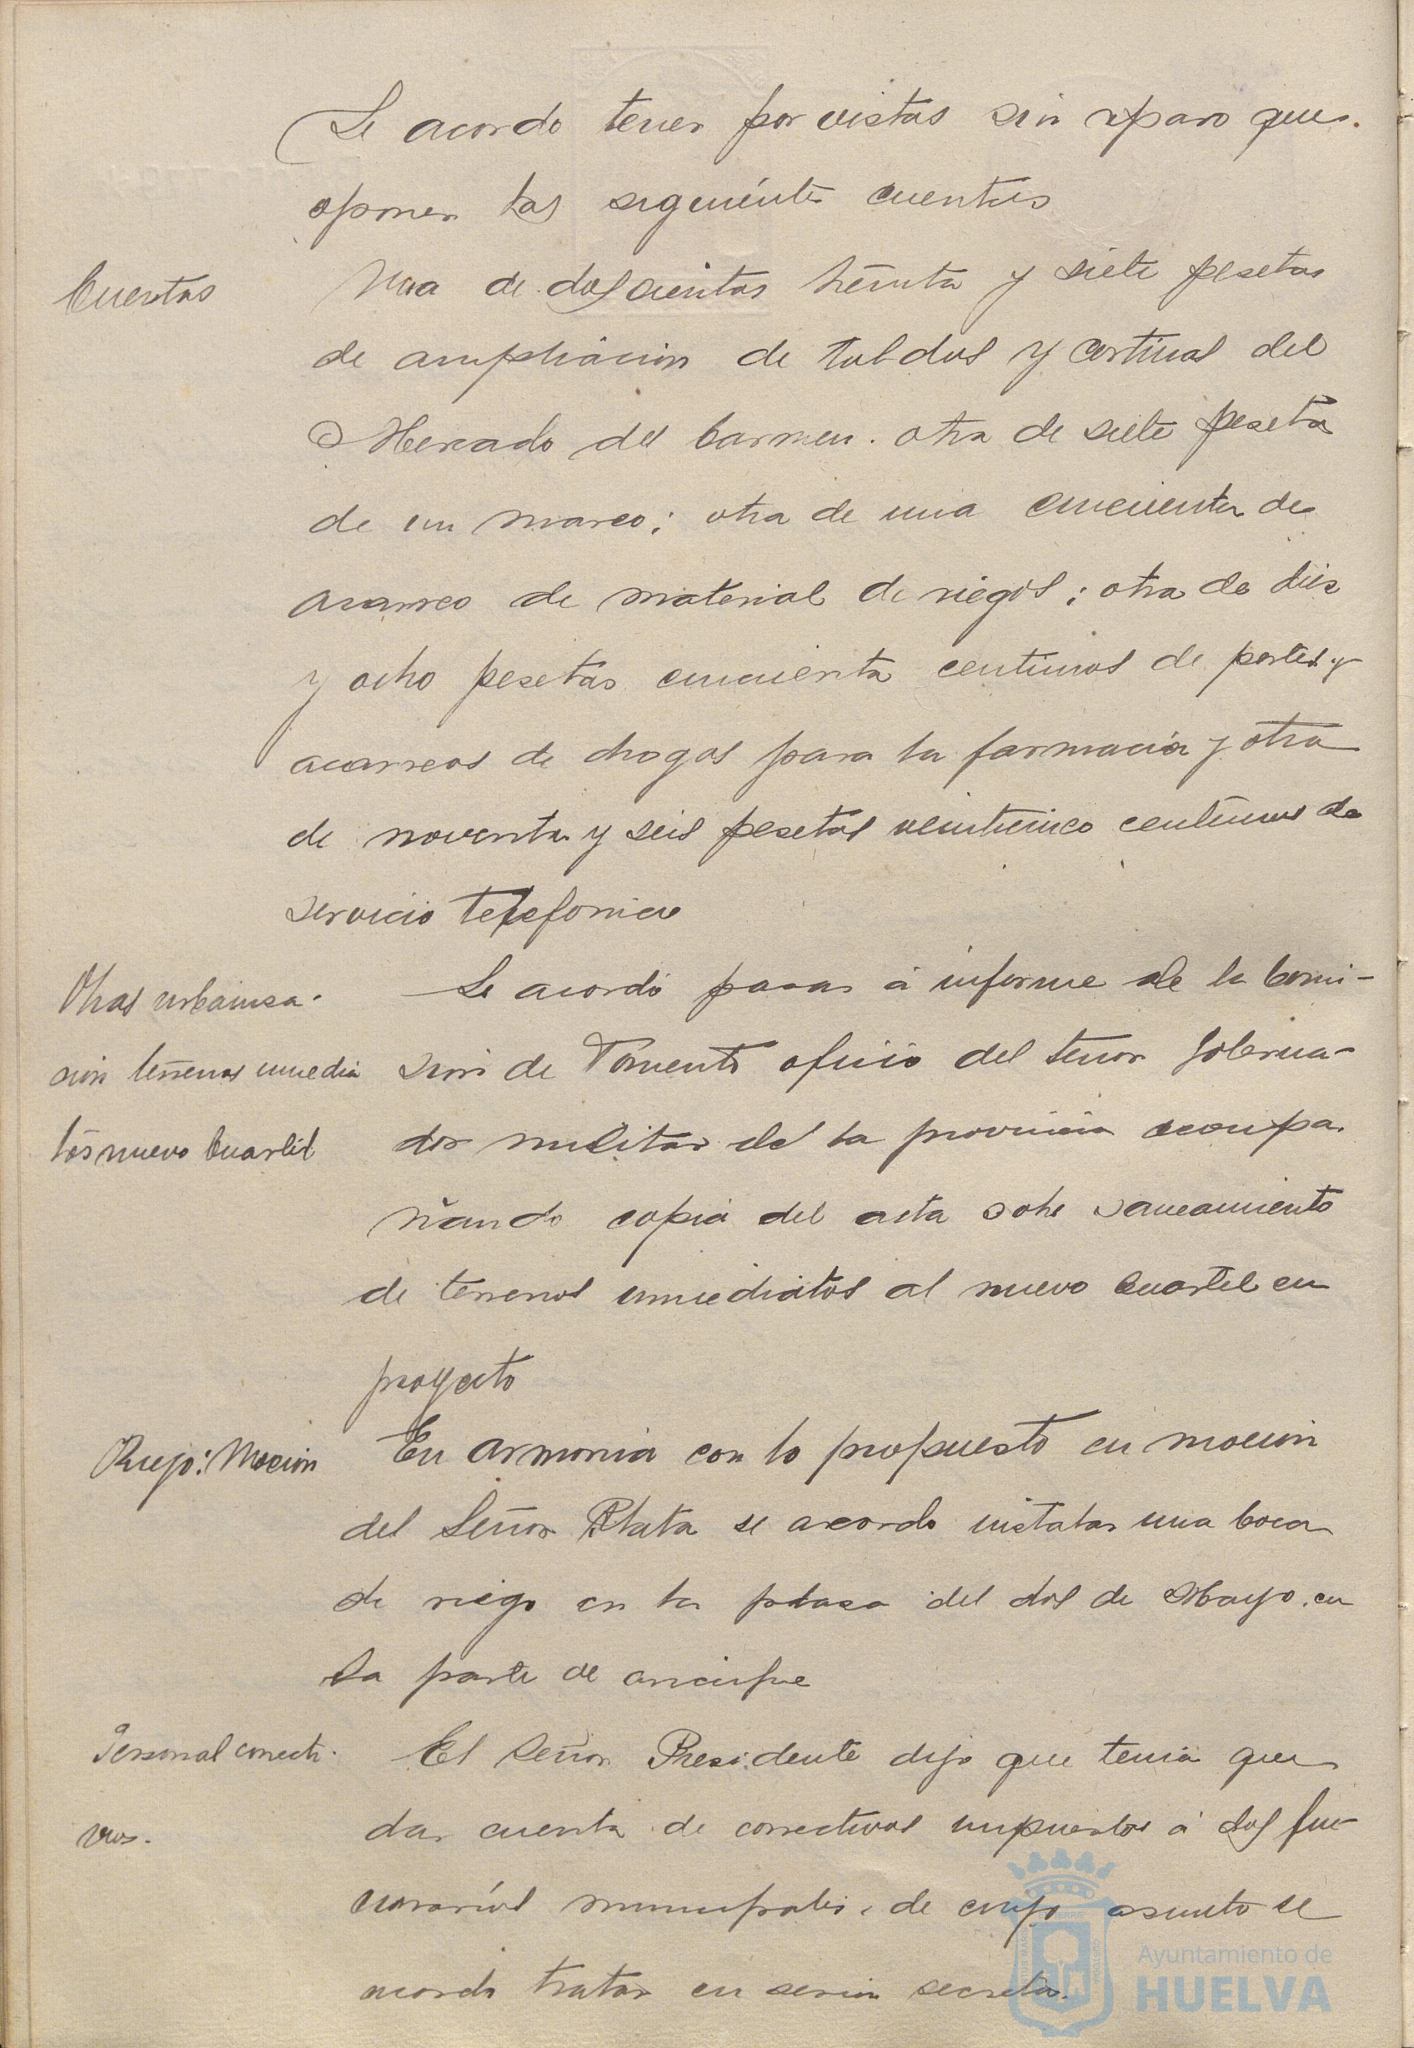 Se acordo tener por vistas sin reparo que
oponer las siguientes cuentas
Cuentas
Una de doscientas treinta y siete pesetas
de ampliacion de toldos y cortinas del
Mercado del Carmen. otra de siete peseta
de un marco; otra de una cincuenta de
acarreo de material de riegos; otra de diez
y ocho pesetas cincuenta centimos de portes y
acarreos de drogas para la farmacia y otra
de noventa y seis pesetas veinticinco centimos de
servicio telefonico
Obras urbaniza-
cion terrenos inmedia
tos nuevo Cuartel
Se acordó pasar á informe de la Comi-
sion de Fomento oficio del señor Goberna-
dor militar de la provincia acompa-
ñando copia del acta sobre saneamiento
de terrenos inmediatos al nuevo Cuartel en
proyecto
Riego: Mocion
En armonia con lo propuesto en mocion
del Señor Plata se acordo instalar una boca
de riego en la plaza del dos de Mayo, en
la parte de arrecife
Personal correcti-
vos.
El Señor Presidente dijo que tenia que
dar cuenta de correctivos impuestos á dos fun-
cionarios municipales, de cuyo asunto se
acordó tratar en sesion secreta.
Ayuntamiento de
HUELVA